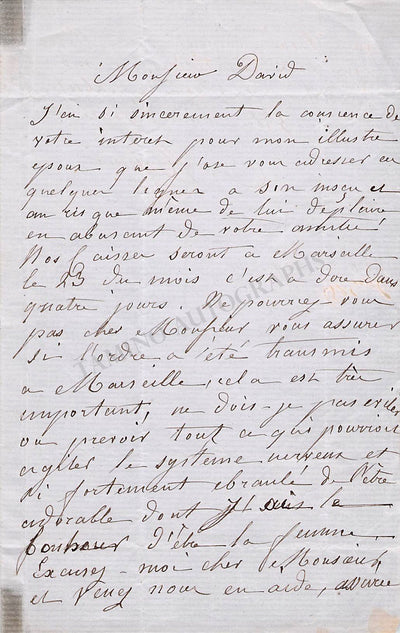 Monsieur David
J'ai si sincerement la conscience de
votre interet pour mon illustre
epoux que j'ose vous adresser ces
quelques lignes a son insçu et
au risque même de lui deplaire
en abusant de votre amitié!
Nos Caisses seront a Marseille
le 23 du mois c'est a dire dans
quatre jours. Ne pourrez vous
pas cher Monsieur vous assurer
si l'ordre a été transmis
a Marseille, cela est très
important, ne dois-je pas eviter
ou prevoir tout ce qui pourroit
agiter le systeme nerveux et
si fortement ebranlé de l'être
adorable dont j'ai le
bonheur d'être la femme.
Excusez-moi cher Monsieur
et venez nous en aide,
TAMINO AUTOGRAPHS